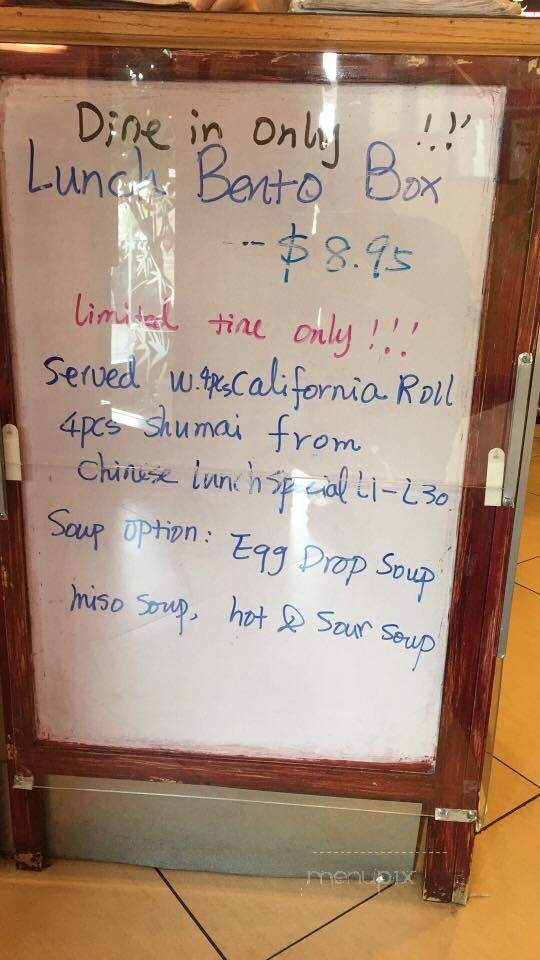 Dine in only !!!
Lunch Bento Box
-- $8.95
limited time only!!!
Served w.4pcs California Roll
4pcs Shumai from
Chinese lunch Special L1-L30
Soup option: Egg Drop Soup
miso soup, hot & Sour Soup
menupix